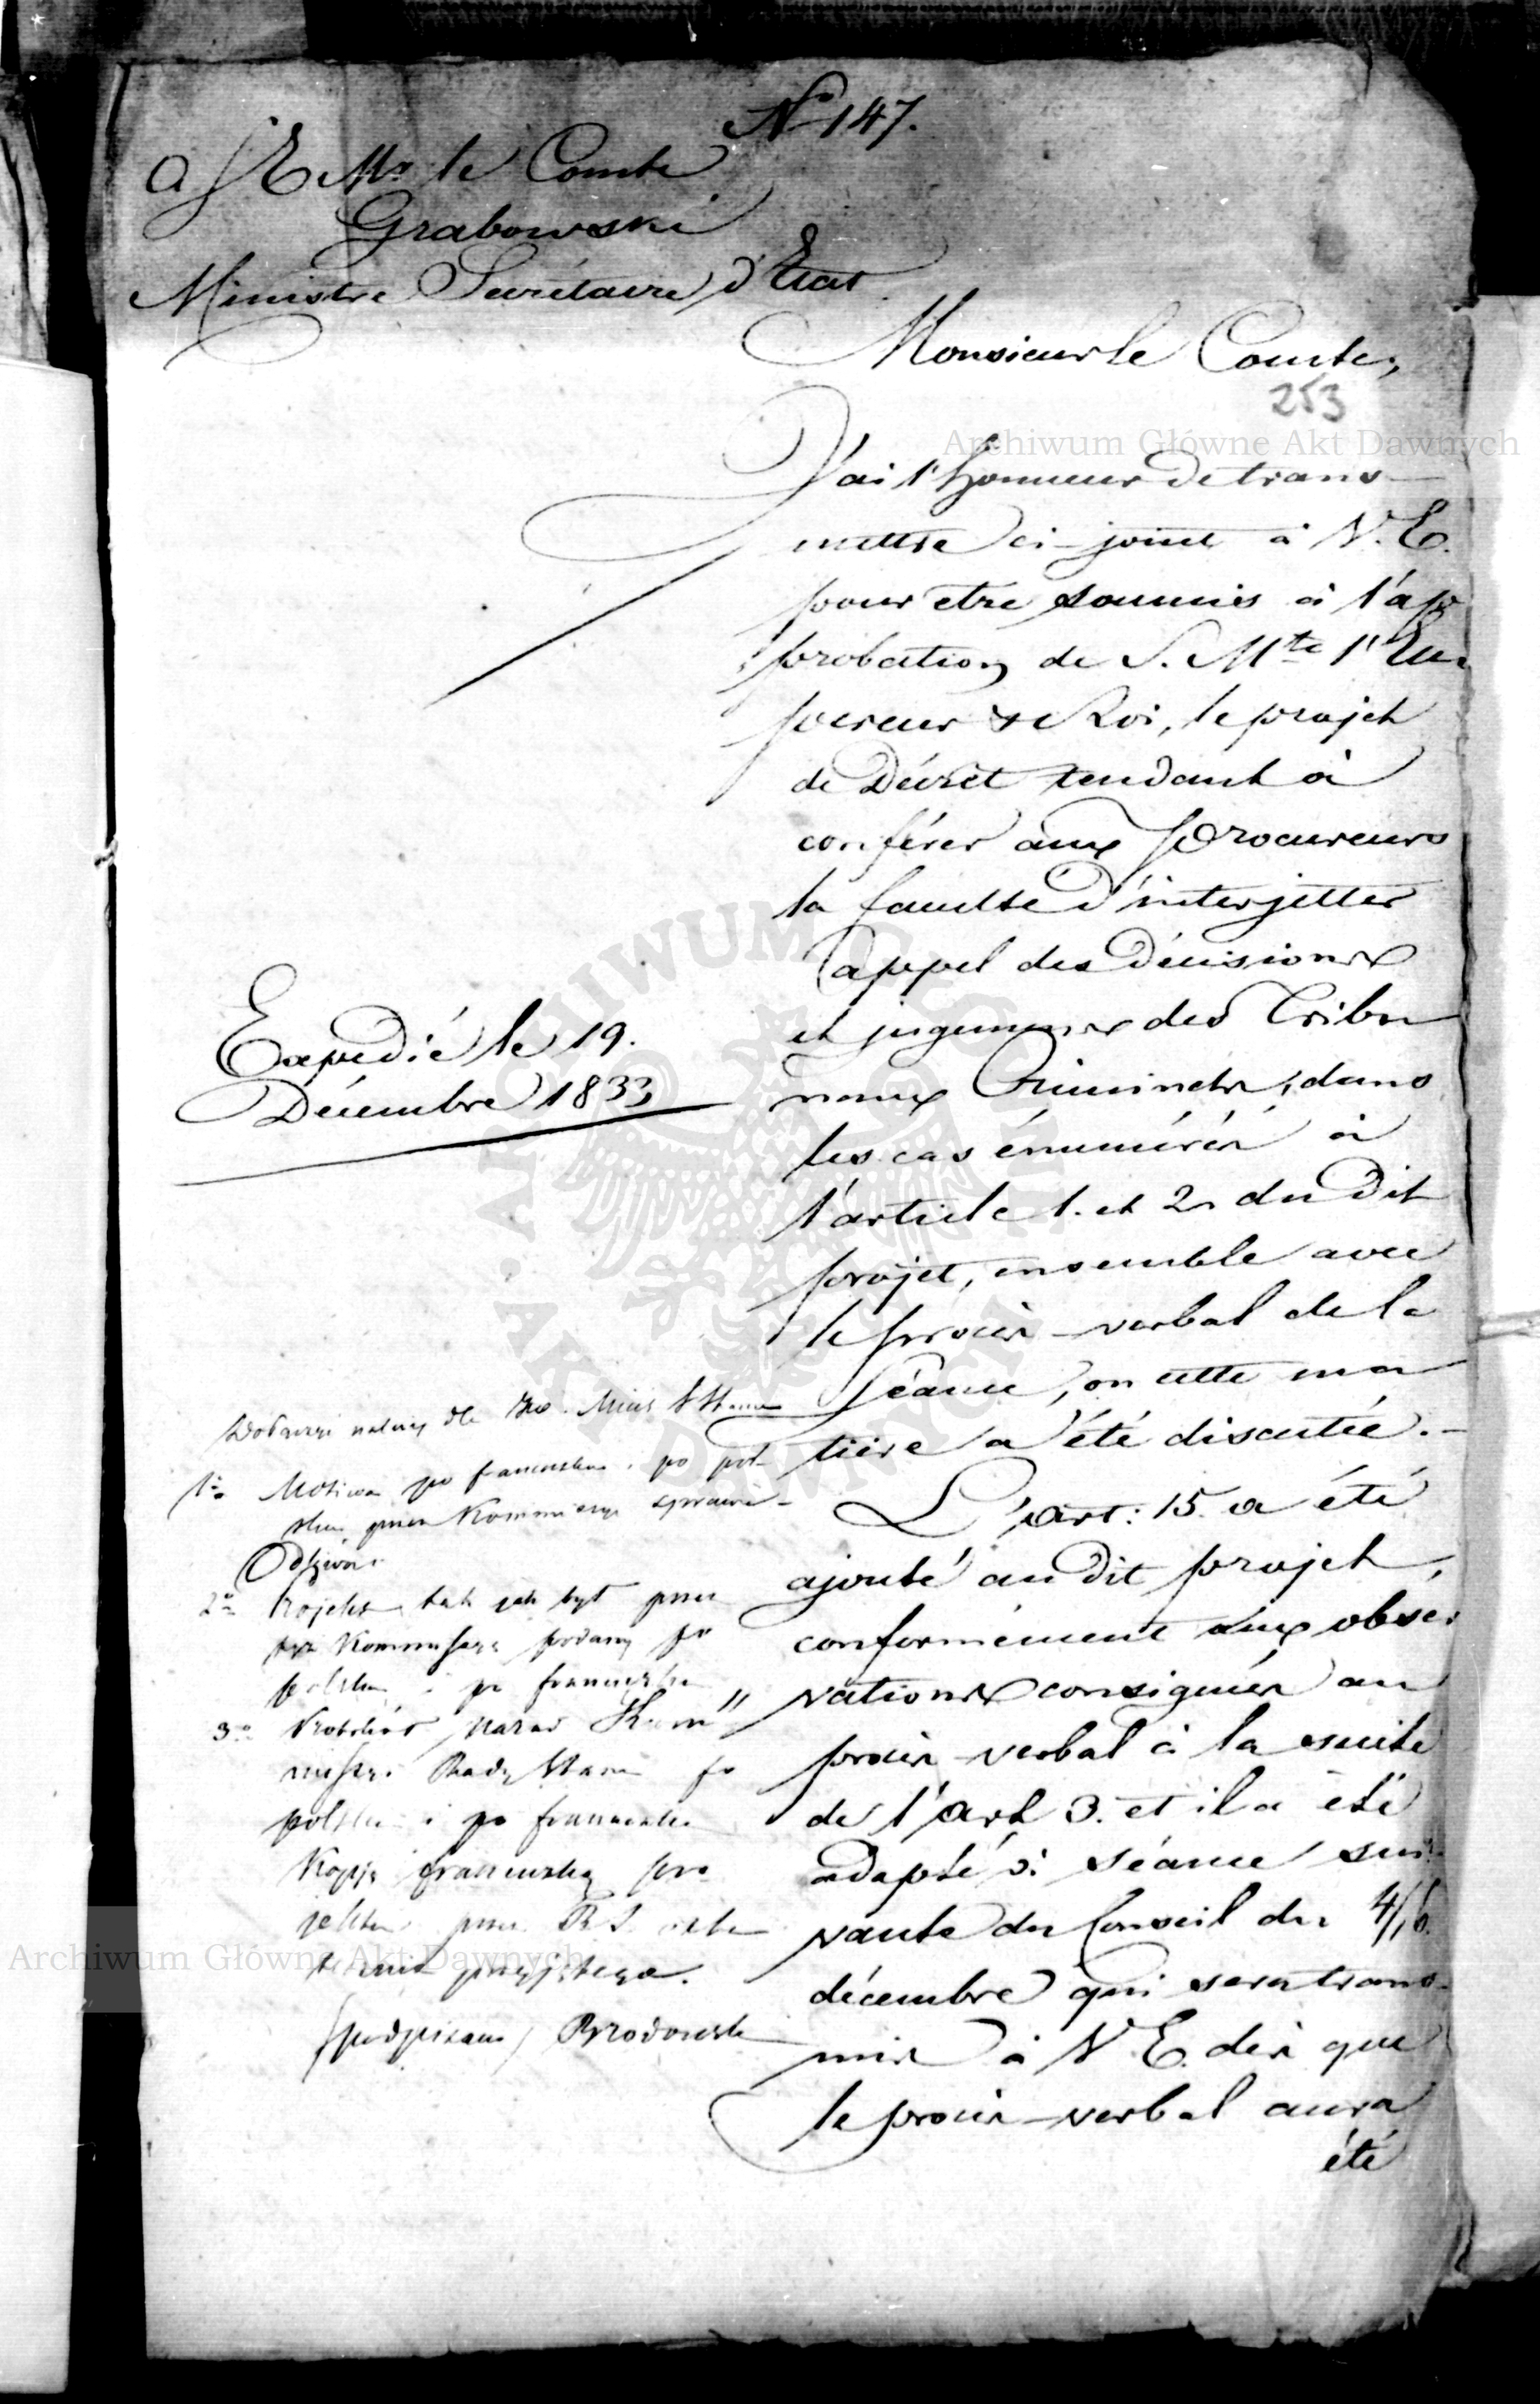 No 147.
a S E Mr le Comte
Grabowski
Ministre Secrétaire d'Etat
Monsieur le Comte,
253
Archiwum Główne Akt Dawnych
J'ai l'honneur de trans-
mettre ci-joint à V. E.
pour etre soumis à l'ap
probation de S. Mté l'Em
pereur et Roi, le projet
de Décret tendant à
conférer aux Procureurs
la faculté d'interjetter
appel des Décisions
et jugemens des Tribu
naux Criminels, dans
les cas énumérés à
l'article 1. et 2. du dit
projet, ensemble avec
le procès-verbal de la
séance, ou cette ma
tière a été discutée.-
L'art: 15. a été
ajouté au dit projet,
conformément aux obser
vations consignées au
procès-verbal à la suite
de l'art 3. et il a été
adopté à séance sui
vante du Conseil du 4/16.
décembre qui sera trans-
mis à V. E. dès que
le procès-verbal aura
été
Expedié le 19.
Décembre 1833
Dołączyć należy dla Min S Stanu
1o Motiwa po francusku i po pol-
sku przez Kommissyę sprawie-
2o Projekt tak jak był przez
Kommissyę podany po
polsku i po francusku
3o Protokół narad Kom
missyi Rady Stanu po
polsku i po francusku
Kopję francuską pro
jektu przez R. S.
przyjętego.
/podpisano/ Brzodowski
ARCHIWUM GŁÓWNE
AKT DAWNYCH
Archiwum Główne Akt Dawnych